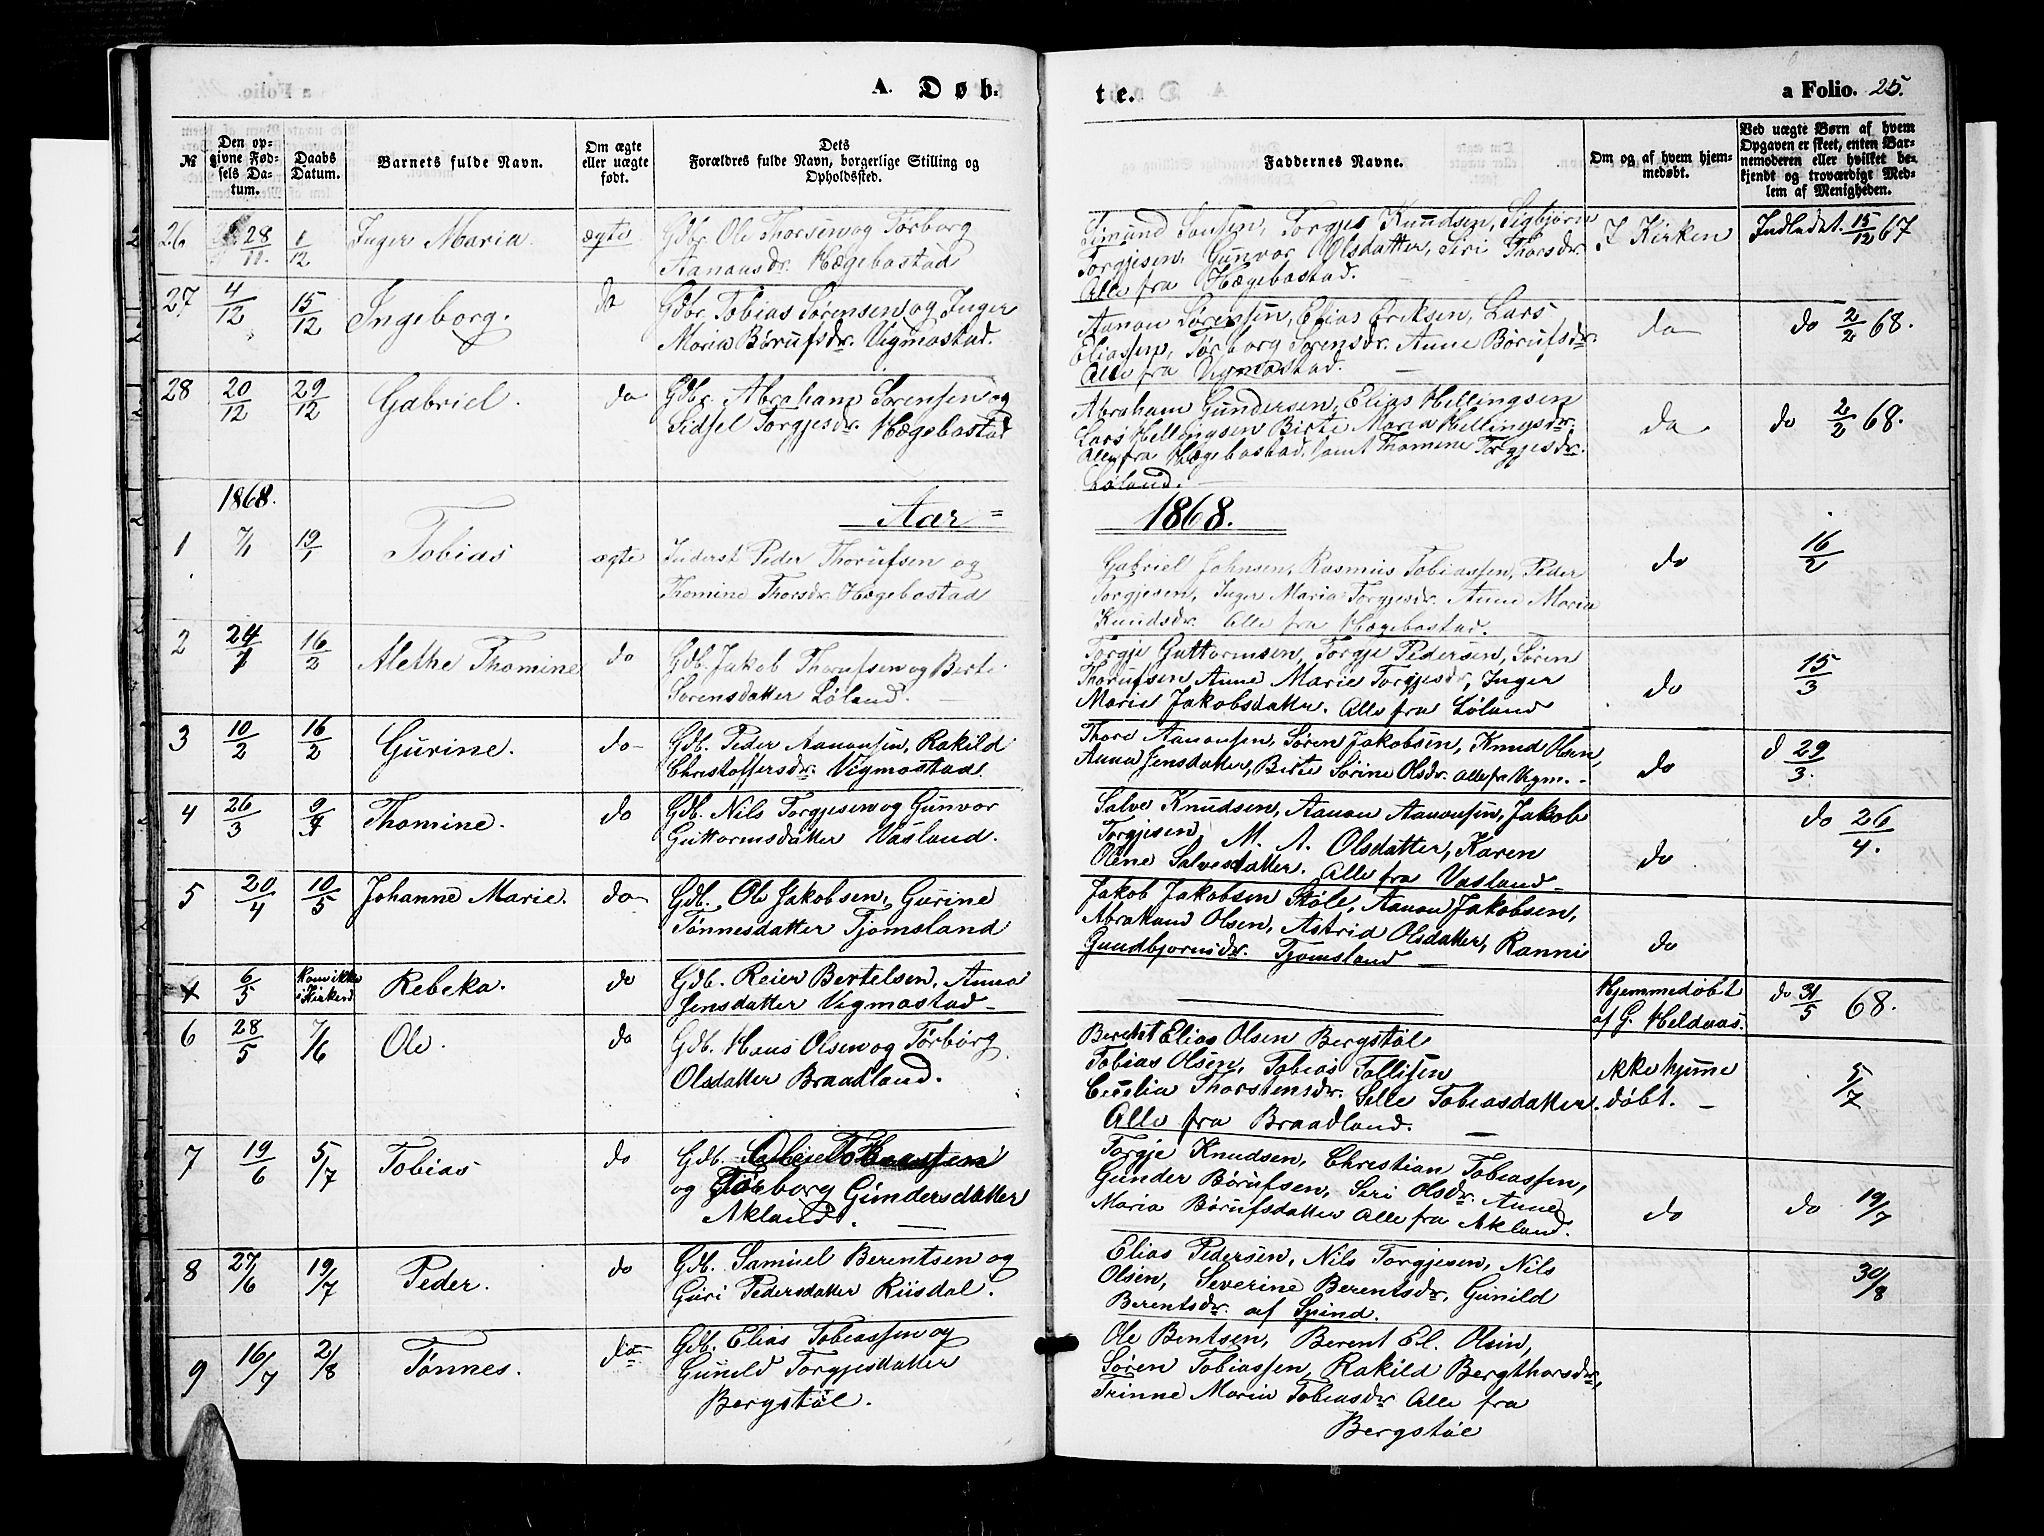 A. Døb-
te.
a Folio. 25.
№
Den op-
givne Fød-
sels Da-
tum.
Daabs
Datum.
Barnets fulde Navn.
Om ægte
eller uægte
født.
Dets
Forældres fulde Navn, borgerlige Stilling og
Opholdssted.
Faddernes Navne.
Om og af hvem hjem-
medøbt.
Ved uægte Børn af hvem
Opgaven er skeet, enten Bar-
nemoderen eller hvilket be-
kjendt og troværdigt Med-
lem af Menigheden.
26 28/11. 1/12 Inger Maria. ægte Gdbr. Ole Thorsen og Tørborg
Aanansdr. Hægebostad
Torgjes Knudsen, Sigbjørn
Torgjesen, Gunvor Olsdatter, Siri Thorsdr.
Alle fra Hægebostad.
I Kirken Indledet. 15/12 67
27 4/12 15/12 Ingeborg. do Gdbr. Tobias Sørensen og Inger
Maria Børufsdr. Vigmostad.
Aanon Sørensen, Elias Eriksen, Lars
Eliassen, Tørborg Sørensdr. Anne Børufsdr.
Alle fra Vigmostad.
do do 2/2 68.
28 20/12 29/12 Gabriel. do Gdbr. Abraham Sørensen og
Sidsel Torgjesdr. Hægebostad
Abraham Gundersen, Elias Hellingsen
Lars Hellingsen Birte Maria Hellingsdr.
Alle fra Hægebostad, samt Thomine Torgjesdr.
Løland.
do do 2/2 68.
1868. Aar =
1868.
1 7/1 19/1 Tobias ægte Inderst Peder Thorufsen og
Thomine Thorsdr. Hægebostad
Gabriel Johnsen, Rasmus Tobiassen, Peder
Torgjesen, Inger Maria Torgjesdr. Anne Maria
Knudsdr. Alle fra Hægebostad.
do 16/2
2 24/1 16/2 Alethe Thomine do Gdb. Jakob Thorufsen og Birte
Sørensdatter Løland.
Torgje Guttormsen, Torgje Pedersen, Søren
Thorufsen Anne Marie Torgjesdr, Inger
Marie Jakobsdatter. Alle fra Løland
do 15/3
3 10/2 16/2 Gurine. do Gdb. Peder Aanonsen, Rakild
Christoffersdr. Vigmostad.
Thore Aanonsen, Søren Jakobsen, Knud Olsen,
Anna Jensdatter, Birte Sørine Olsdr. Alle fra Vigm.
do d 29/3.
4 26/3 9/4 Thomine. do Gdb. Nils Torgjesen og Gunvor
Guttormsdatter Vasland.
Salve Knudsen, Aanon Aanonsen, Jakob
Torgjesen, M. A. Olsdatter, Karen
Olene Salvesdatter. Alle fra Vasland
do do 26/4.
5 20/4 10/5 Johanne Marie. do Gdb. Ole Jakobsen, Gurine
Tønnesdatter Tjomsland
Jakob Jakobsen Støle, Aanon Jakobsen,
Abraham Olsen, Astrid Olsdatter, Ranni
Gundbjørnsdr. Tjomsland
do
6/5 Kom ikke
i Kirken Rebeka. do Gdb. Reier Bertelsen, Anna
Jensdatter Vigmostad
Hjemmedøbt
af G. Heldaas. do 31/5 68.
6 28/5 7/6 Ole. do Gdb. Hans Olsen og Tørborg
Olsdatter Braadland.
Berent Elias Olsen Bergstøl
Tobias Olsen, Tobias Tallisen
Cecelia Thorstensdr. Selle Tobiasdatter.
Alle fra Braadland.
ikke hjemme
døbt. 5/7
7 19/6 5/7 Tobias do Gdb.
og Tørborg Gundersdatter
Akland.
Torgje Knudsen, Christian Tobiassen,
Gunder Børufsen, Siri Olsdr. Anne
Maria Børufsdatter Alle fra Akland.
do do 19/7
8 27/6 19/7 Peder. do Gdb. Samuel Berentsen og
Guri Pedersdatter Riisdal.
Elias Pedersen, Nils Torgjesen, Nils
Olsen, Severine Berentsdr. Gunild
Berentsdr. af Spind.
30/8
9 16/7 2/8 Tønnes. do Gdb. Elias Tobiassen og
Gunild Torgjesdatter
Bergstøl.
Ole Bentsen, Berent El. Olsen,
Søren Tobiassen, Rakild Bergthorsdr.
Trinne Maria Tobiasdr Alle fra
Bergstøl